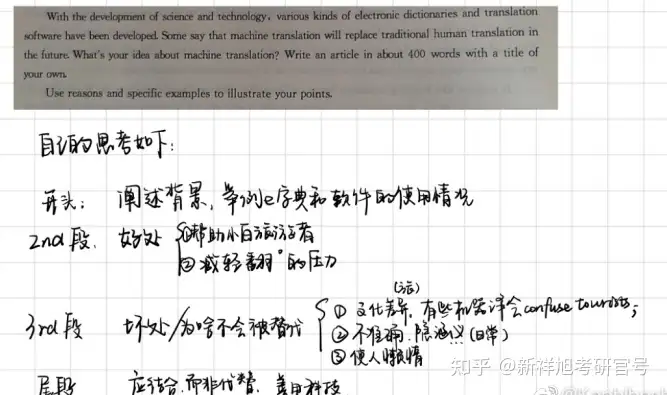 With the development of science and technology, various kinds of electronic dictionaries and translation
software have been developed. Some say that machine translation will replace traditional human translation in
the future. What's your idea about machine translation? Write an article in about 400 words with a title of
your own.
Use reasons and specific examples to illustrate your points.
自己的思考如下:
开头: 阐述背景, 举例e字典和软件的使用情况
2nd段. 好处 ①帮助小白旅游者
②减轻翻°的压力
(诙)
3rd段 坏处/为啥不会被替代 ① 文化差异, 有些机器译会confuse tourists;
② 不准确, 隐涵义(日常)
③ 使人懒惰
尾段 应结合,而非代替, 善用科技
知乎 @新祥旭考研官号